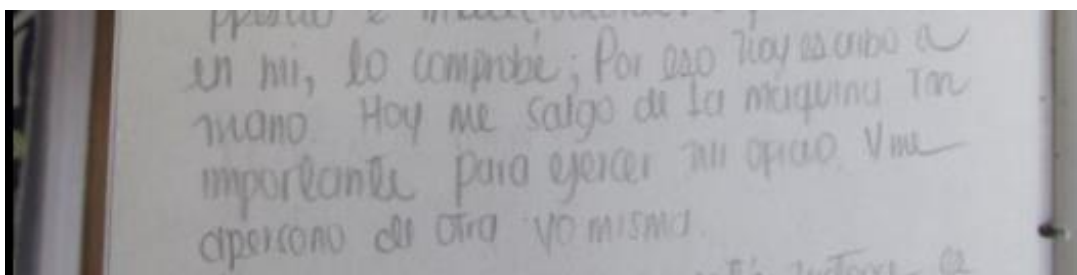 en mi, lo comprobé; Por eso hoy escribo a
mano. Hoy me salgo de la máquina tan
importante para ejercer mi oficio. Y me
apersono de otra yo misma.